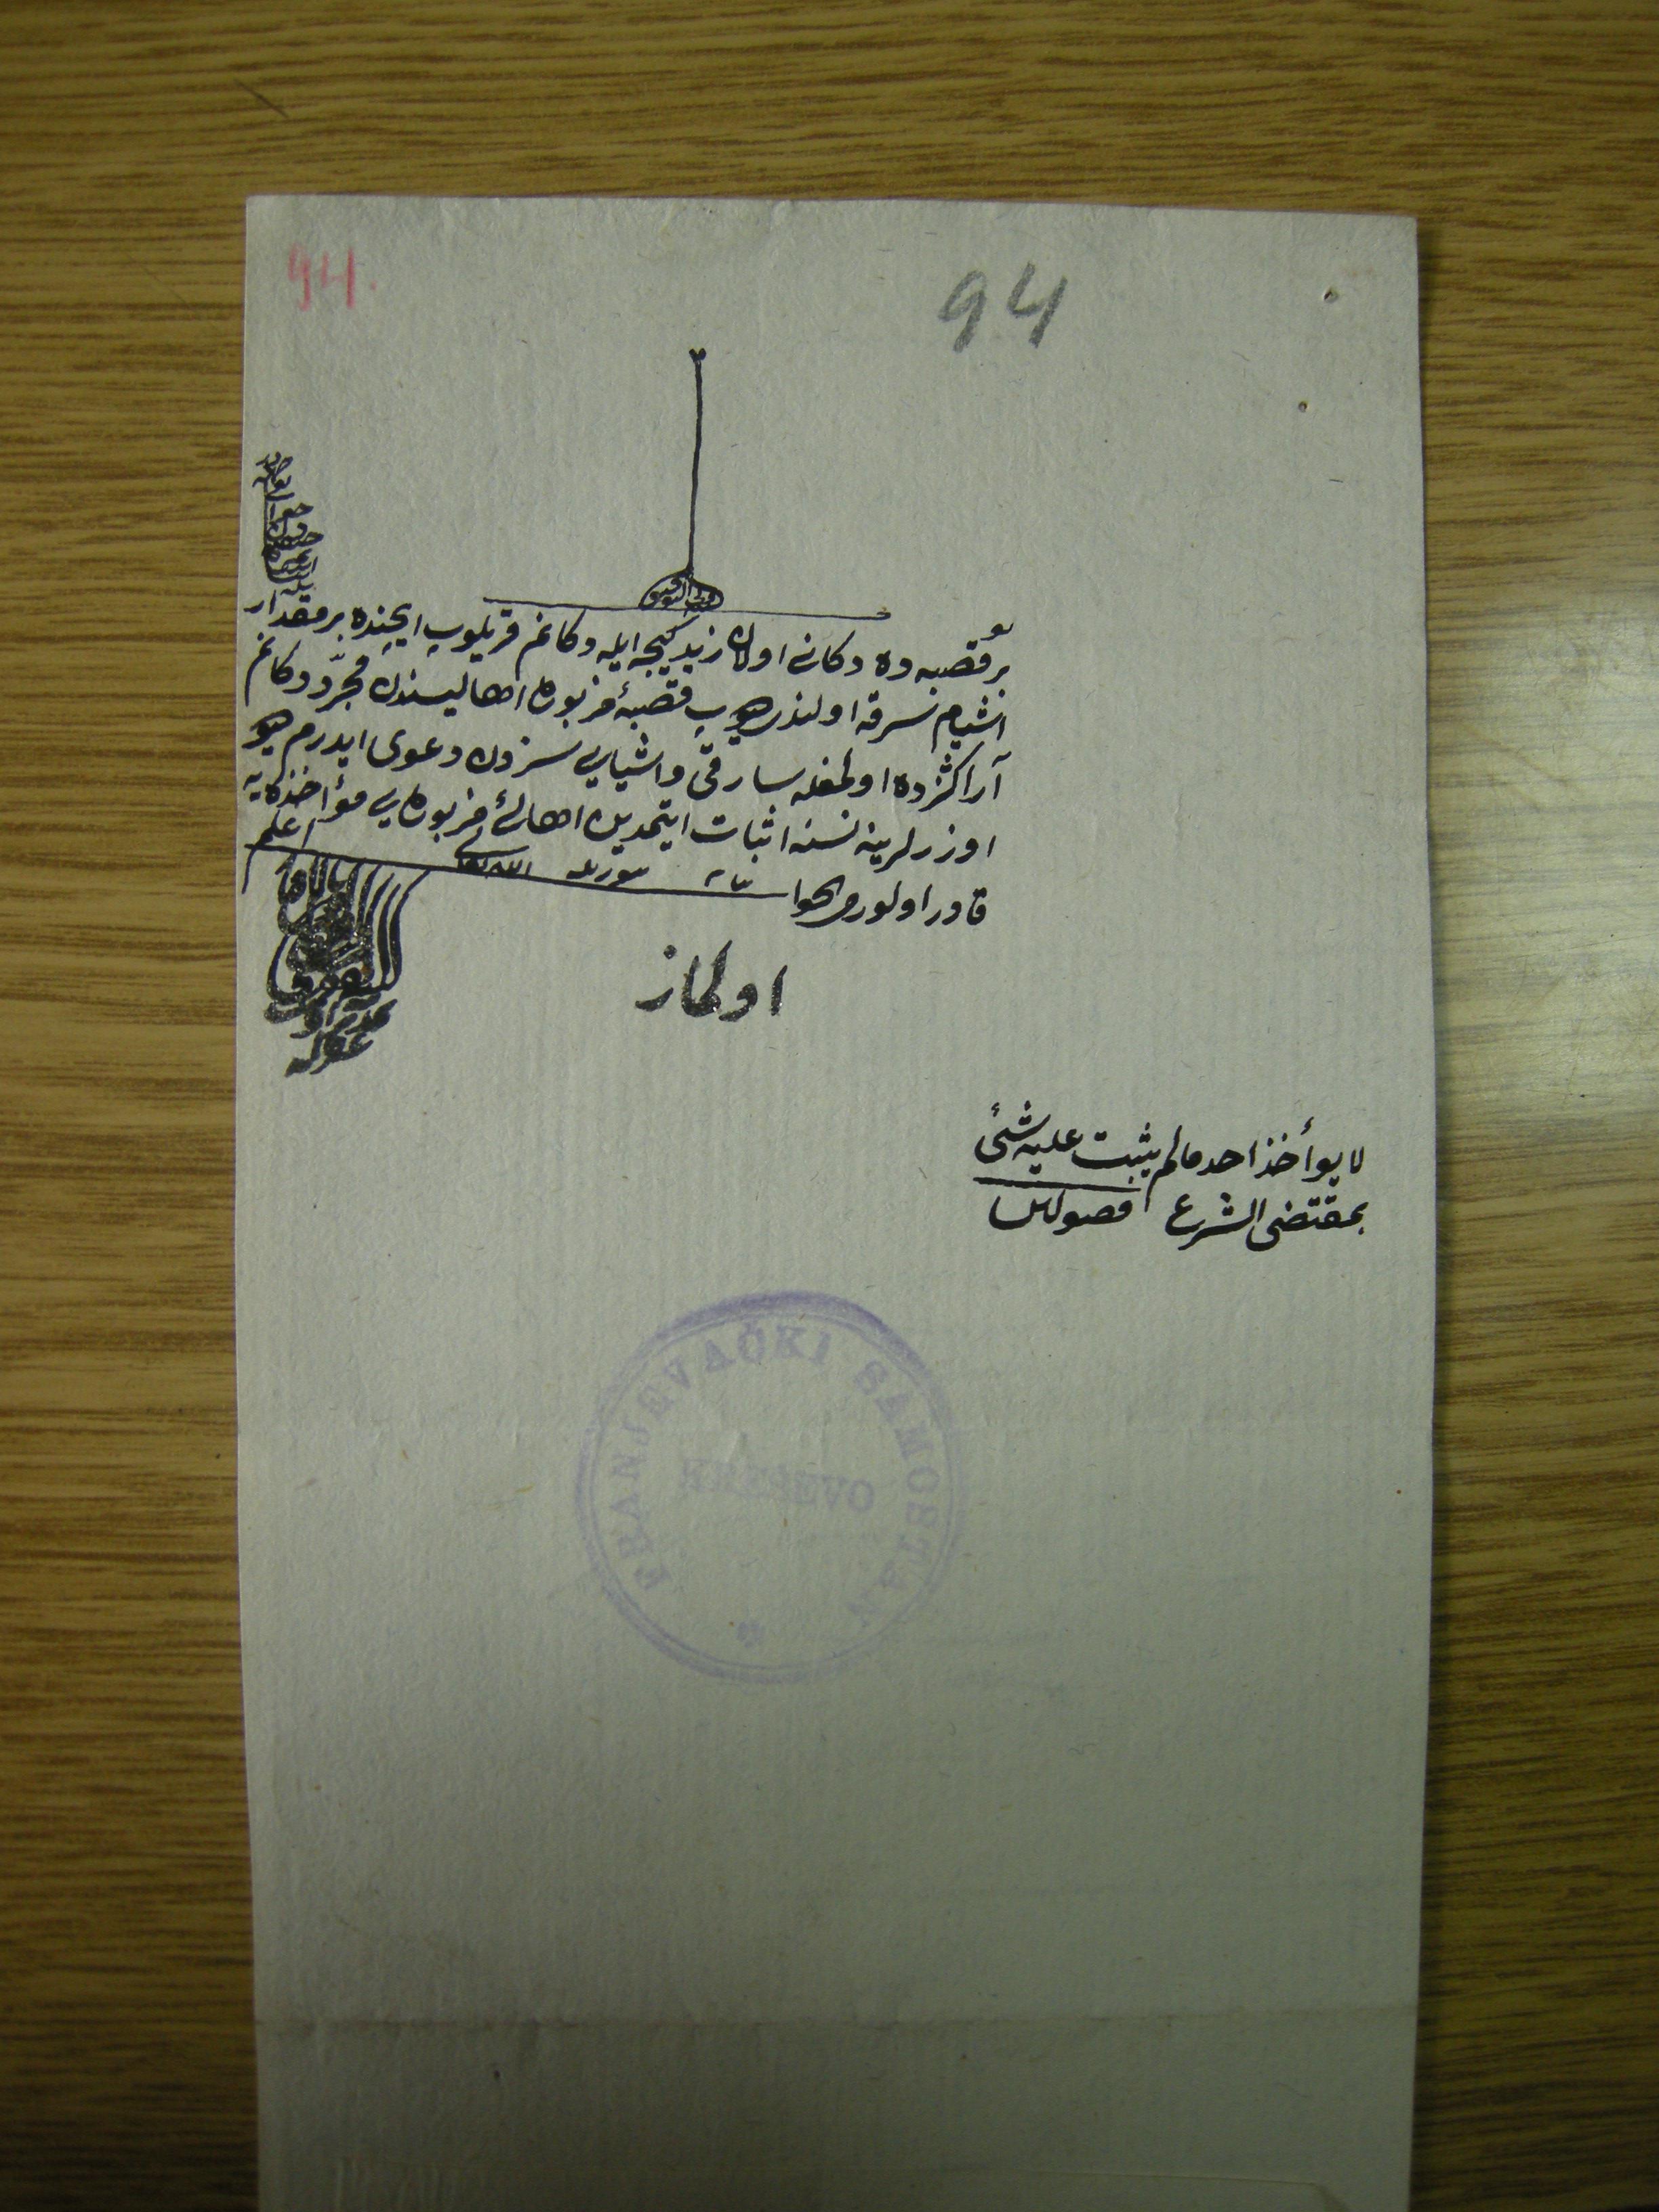 94.
94
بر قصبه ده دكانی اولان زيد كيجه ايله دكانم قريلوب ايچنده بر مقدار
اشيام سرقه اولندی ديوب قصبهٔ مزبوره اهاليسندن مجرّد دكانم
آراكزده اولمغله سارقی و اشيايی سزدن دعوی ايدرم ديو
اوزرلرينه نسنه اثبات ايتمدين اهالیٔ مزبوره يی مؤاخذه يه
قادر اولورمی الجواب
اعلم
اولماز
لا يوأخذ احد مالم يثبت عليه شئ
بمقتضی الشرع فصولين
FRANJEVAČKI SAMOSTAN
KREŠEVO